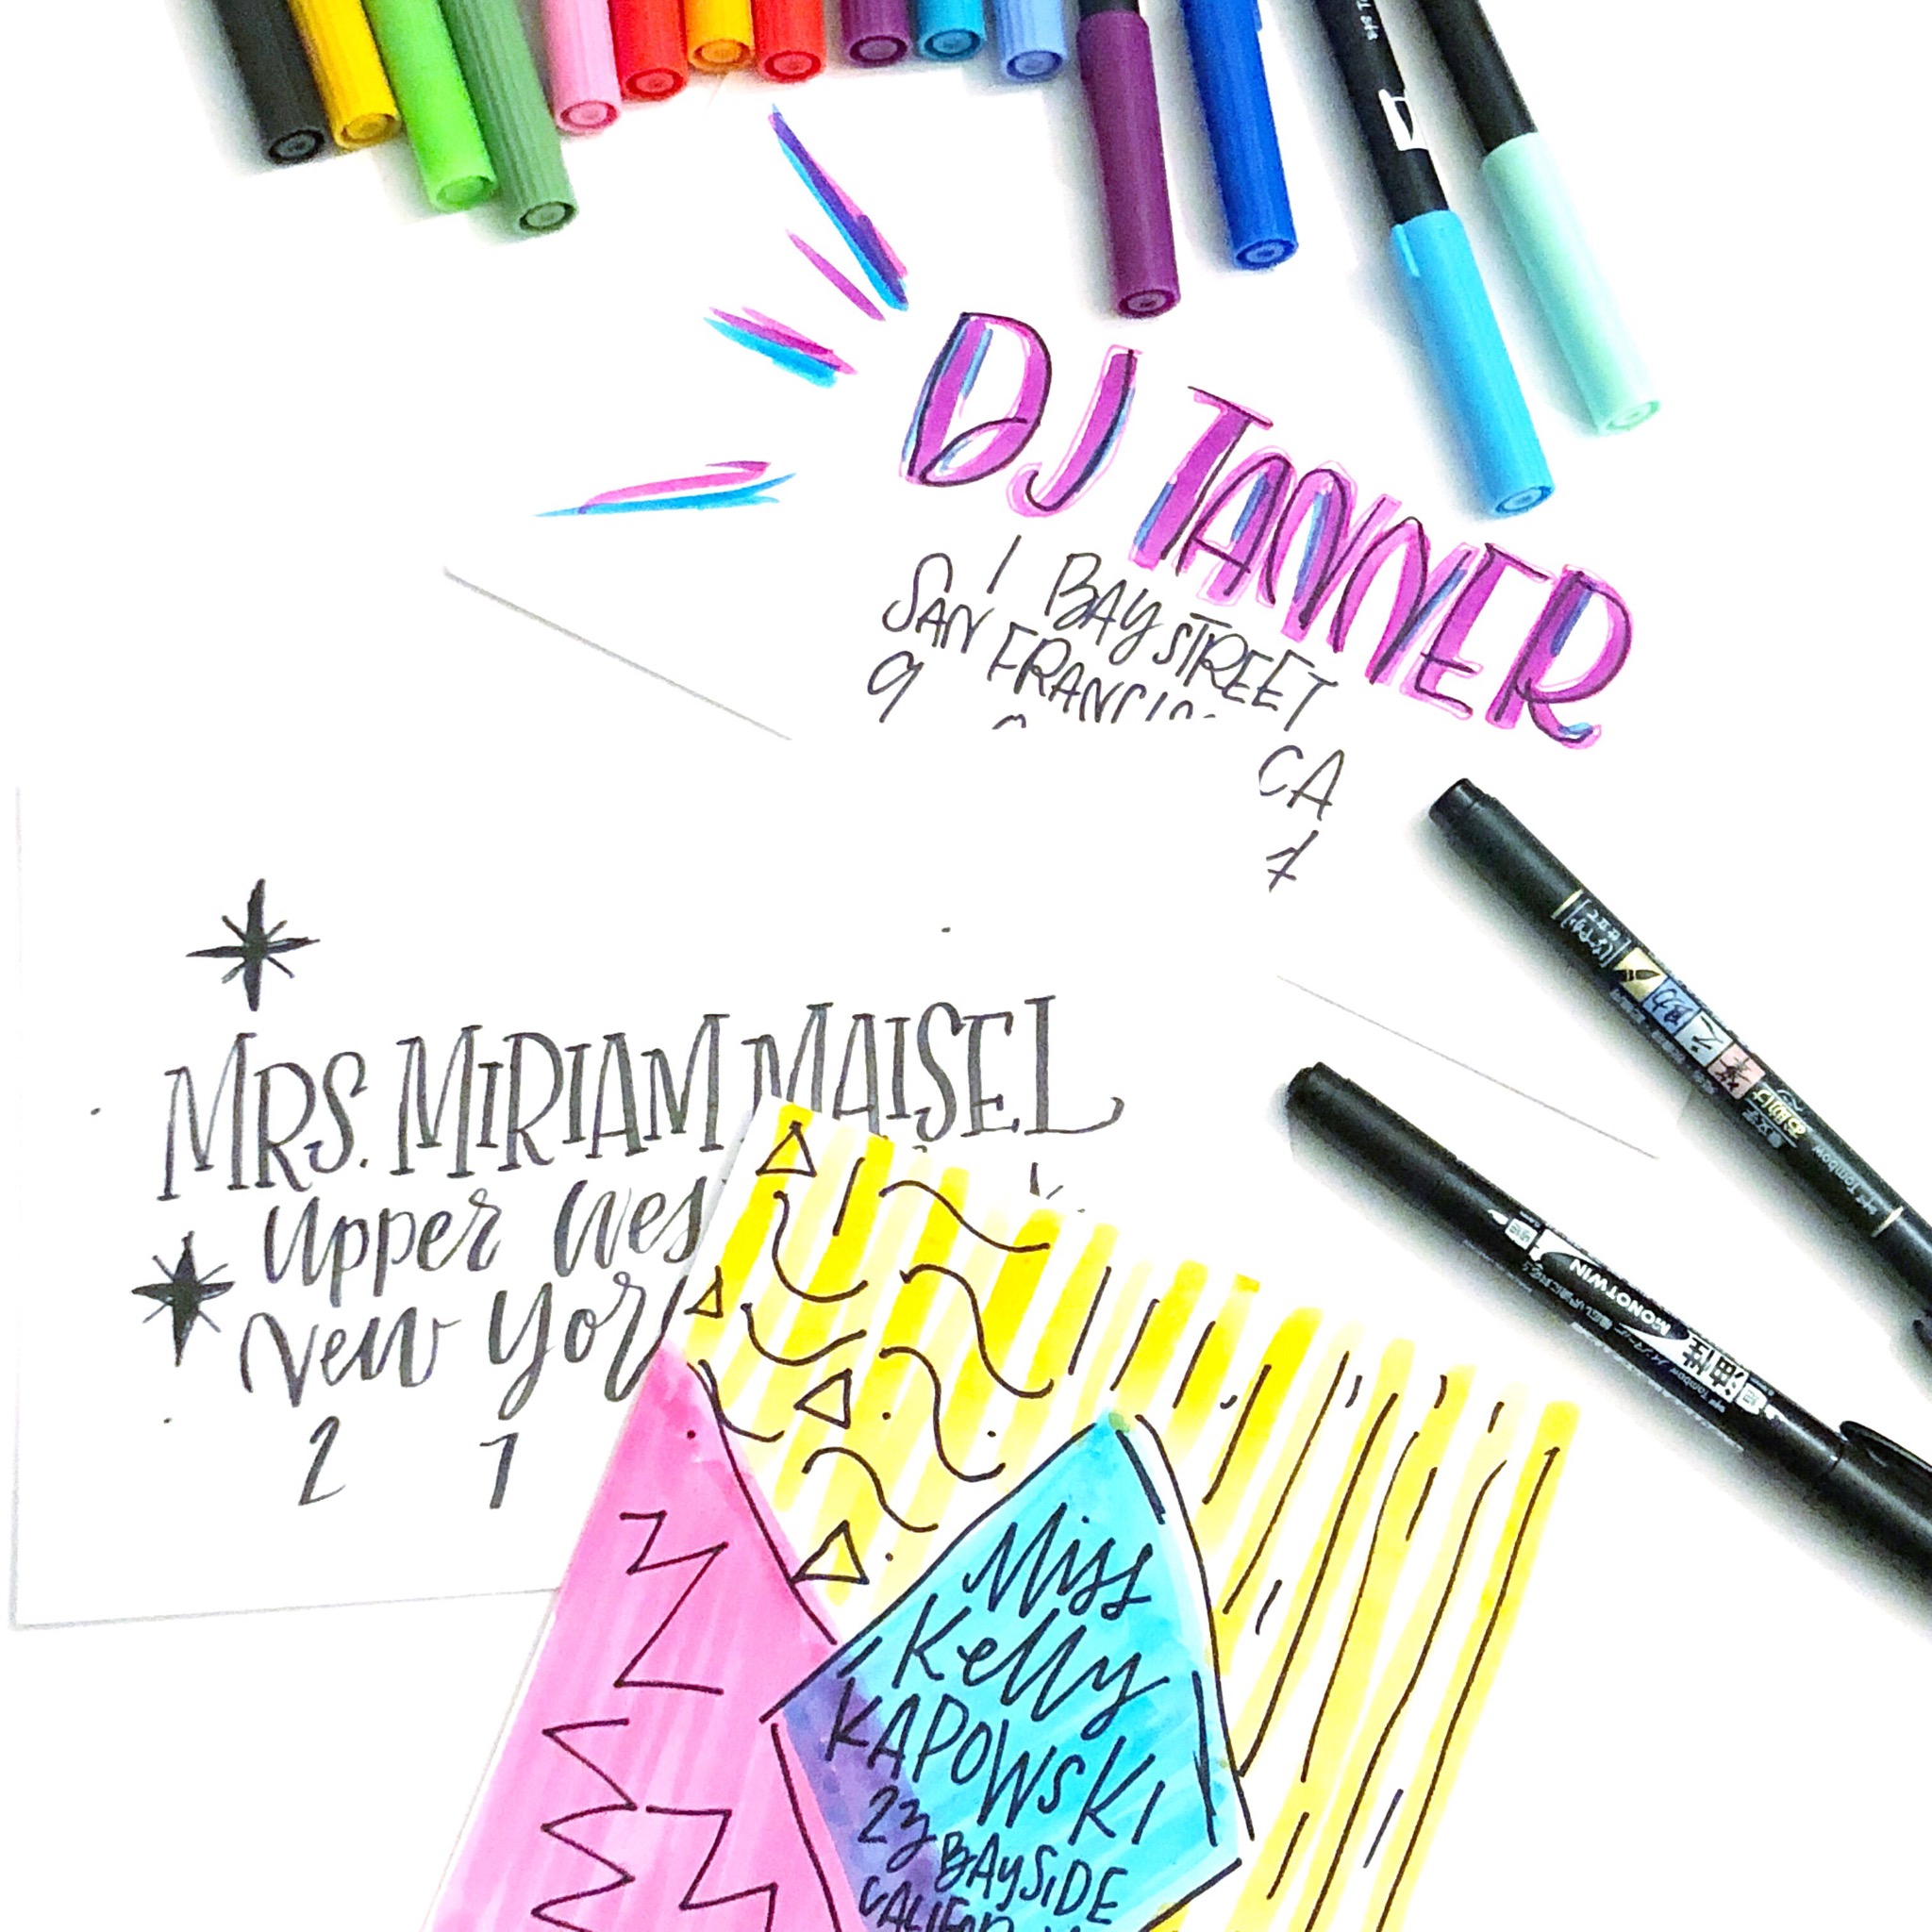 DJ TANNER
1 BAY STREET
SAN FRANCISC
CA
9
7
MRS. MIRIAM MAISEL
Upper Wes
New York
2 7
Miss
Kelly
KAPOWSKI
23 BAYSIDE
CALIFOR
MONOTWIN
油性
Tombow